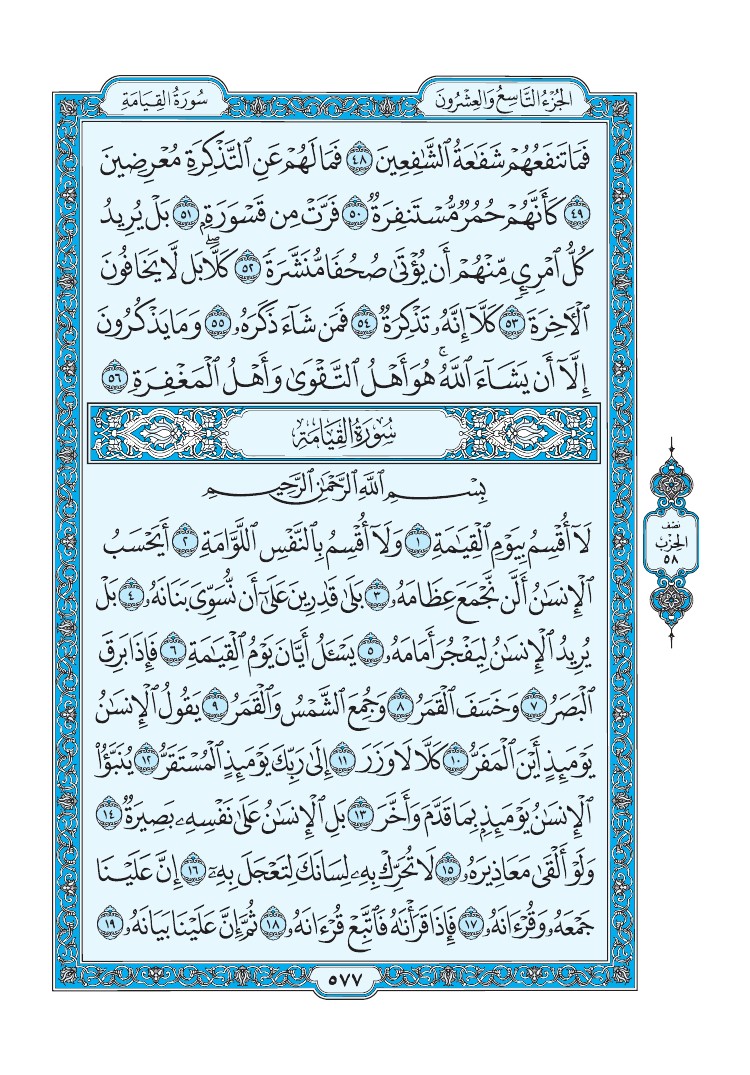 الجُزْءُ التَّاسِعُ وَالعِشْرُونَ
سُورَةُ القِيَامَةِ
فَمَا تَنفَعُهُمْ شَفَٰعَةُ ٱلشَّٰفِعِينَ ٤٨ فَمَا لَهُمْ عَنِ ٱلتَّذْكِرَةِ مُعْرِضِينَ
٤٩ كَأَنَّهُمْ حُمُرٌ مُّسْتَنفِرَةٌ ٥٠ فَرَّتْ مِن قَسْوَرَةٍۭ ٥١ بَلْ يُرِيدُ
كُلُّ ٱمْرِئٍ مِّنْهُمْ أَن يُؤْتَىٰ صُحُفًا مُّنَشَّرَةً ٥٢ كَلَّاۖ بَل لَّا يَخَافُونَ
ٱلْأٓخِرَةَ ٥٣ كَلَّآ إِنَّهُۥ تَذْكِرَةٌ ٥٤ فَمَن شَآءَ ذَكَرَهُۥ ٥٥ وَمَا يَذْكُرُونَ
إِلَّآ أَن يَشَآءَ ٱللَّهُۚ هُوَ أَهْلُ ٱلتَّقْوَىٰ وَأَهْلُ ٱلْمَغْفِرَةِ ٥٦
سُورَةُ القِيَامَةِ
بِسْمِ ٱللَّهِ ٱلرَّحْمَٰنِ ٱلرَّحِيمِ
لَآ أُقْسِمُ بِيَوْمِ ٱلْقِيَٰمَةِ ١ وَلَآ أُقْسِمُ بِٱلنَّفْسِ ٱللَّوَّامَةِ ٢ أَيَحْسَبُ
ٱلْإِنسَٰنُ أَلَّن نَّجْمَعَ عِظَامَهُۥ ٣ بَلَىٰ قَٰدِرِينَ عَلَىٰٓ أَن نُّسَوِّىَ بَنَانَهُۥ ٤ بَلْ
يُرِيدُ ٱلْإِنسَٰنُ لِيَفْجُرَ أَمَامَهُۥ ٥ يَسْـَٔلُ أَيَّانَ يَوْمُ ٱلْقِيَٰمَةِ ٦ فَإِذَا بَرِقَ
ٱلْبَصَرُ ٧ وَخَسَفَ ٱلْقَمَرُ ٨ وَجُمِعَ ٱلشَّمْسُ وَٱلْقَمَرُ ٩ يَقُولُ ٱلْإِنسَٰنُ
يَوْمَئِذٍ أَيْنَ ٱلْمَفَرُّ ١٠ كَلَّا لَا وَزَرَ ١١ إِلَىٰ رَبِّكَ يَوْمَئِذٍ ٱلْمُسْتَقَرُّ ١٢ يُنَبَّؤُا۟
ٱلْإِنسَٰنُ يَوْمَئِذٍۭ بِمَا قَدَّمَ وَأَخَّرَ ١٣ بَلِ ٱلْإِنسَٰنُ عَلَىٰ نَفْسِهِۦ بَصِيرَةٌ ١٤
وَلَوْ أَلْقَىٰ مَعَاذِيرَهُۥ ١٥ لَا تُحَرِّكْ بِهِۦ لِسَانَكَ لِتَعْجَلَ بِهِۦٓ ١٦ إِنَّ عَلَيْنَا
جَمْعَهُۥ وَقُرْءَانَهُۥ ١٧ فَإِذَا قَرَأْنَٰهُ فَٱتَّبِعْ قُرْءَانَهُۥ ١٨ ثُمَّ إِنَّ عَلَيْنَا بَيَانَهُۥ ١٩
نصف
الحِزْب
٥٨
٥٧٧